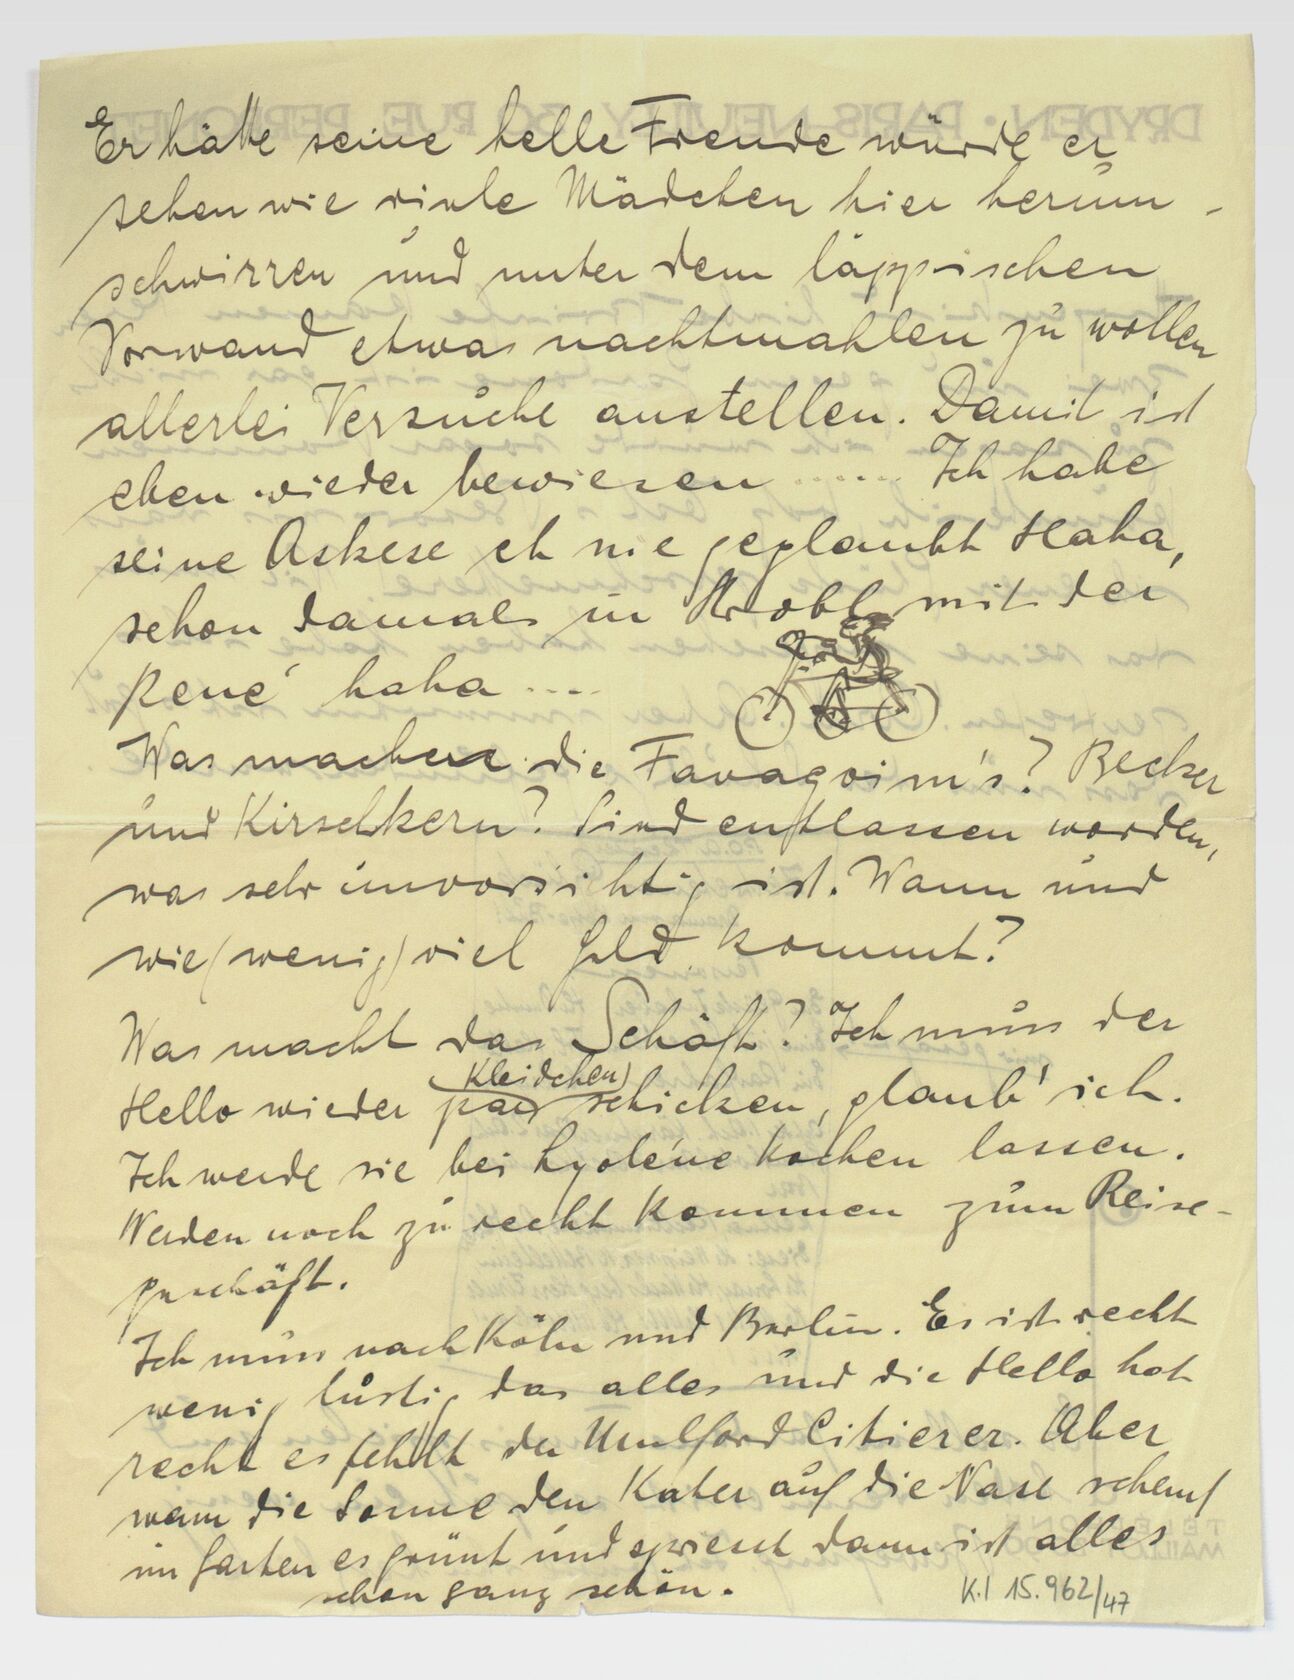 Er hätte seine helle Freude würde er
sehen wie viele Mädchen hier herum-
schwirren und unter dem läppischen
Vorwand etwas nachtmahlen zu wollen
allerlei Versuche anstellen. Damit ist
eben wieder bewiesen ...... Ich habe
seine Askese eh nie geglaubt Haha,
schon damals in Strobl mit der
René haha ....
Was machen die ? Becker
und Kirschkern? Sind entlassen worden,
was sehr unvorsichtig ist. Wann und
wie (wenig) viel Geld kommt?
Was macht das Schäft? Ich muss der
Kleidchen)
Hello wieder paar schicken, glaub' ich.
Ich werde sie bei Lyolène kochen lassen.
Werden noch zu recht kommen zum Reise-
geschäft.
Ich muss nach Köln und Berlin. Es ist recht
wenig lustig das alles und die Hello hat
recht es fehlt der Mulford Citierer. Aber
wenn die Sonne den Kater auf die Nase scheint
im Garten es grünt und spriesst dann ist alles
schon ganz schön.
K.I 15.962/47
DRYDEN · PARIS-NEUILLY · 50 RUE PERRONET